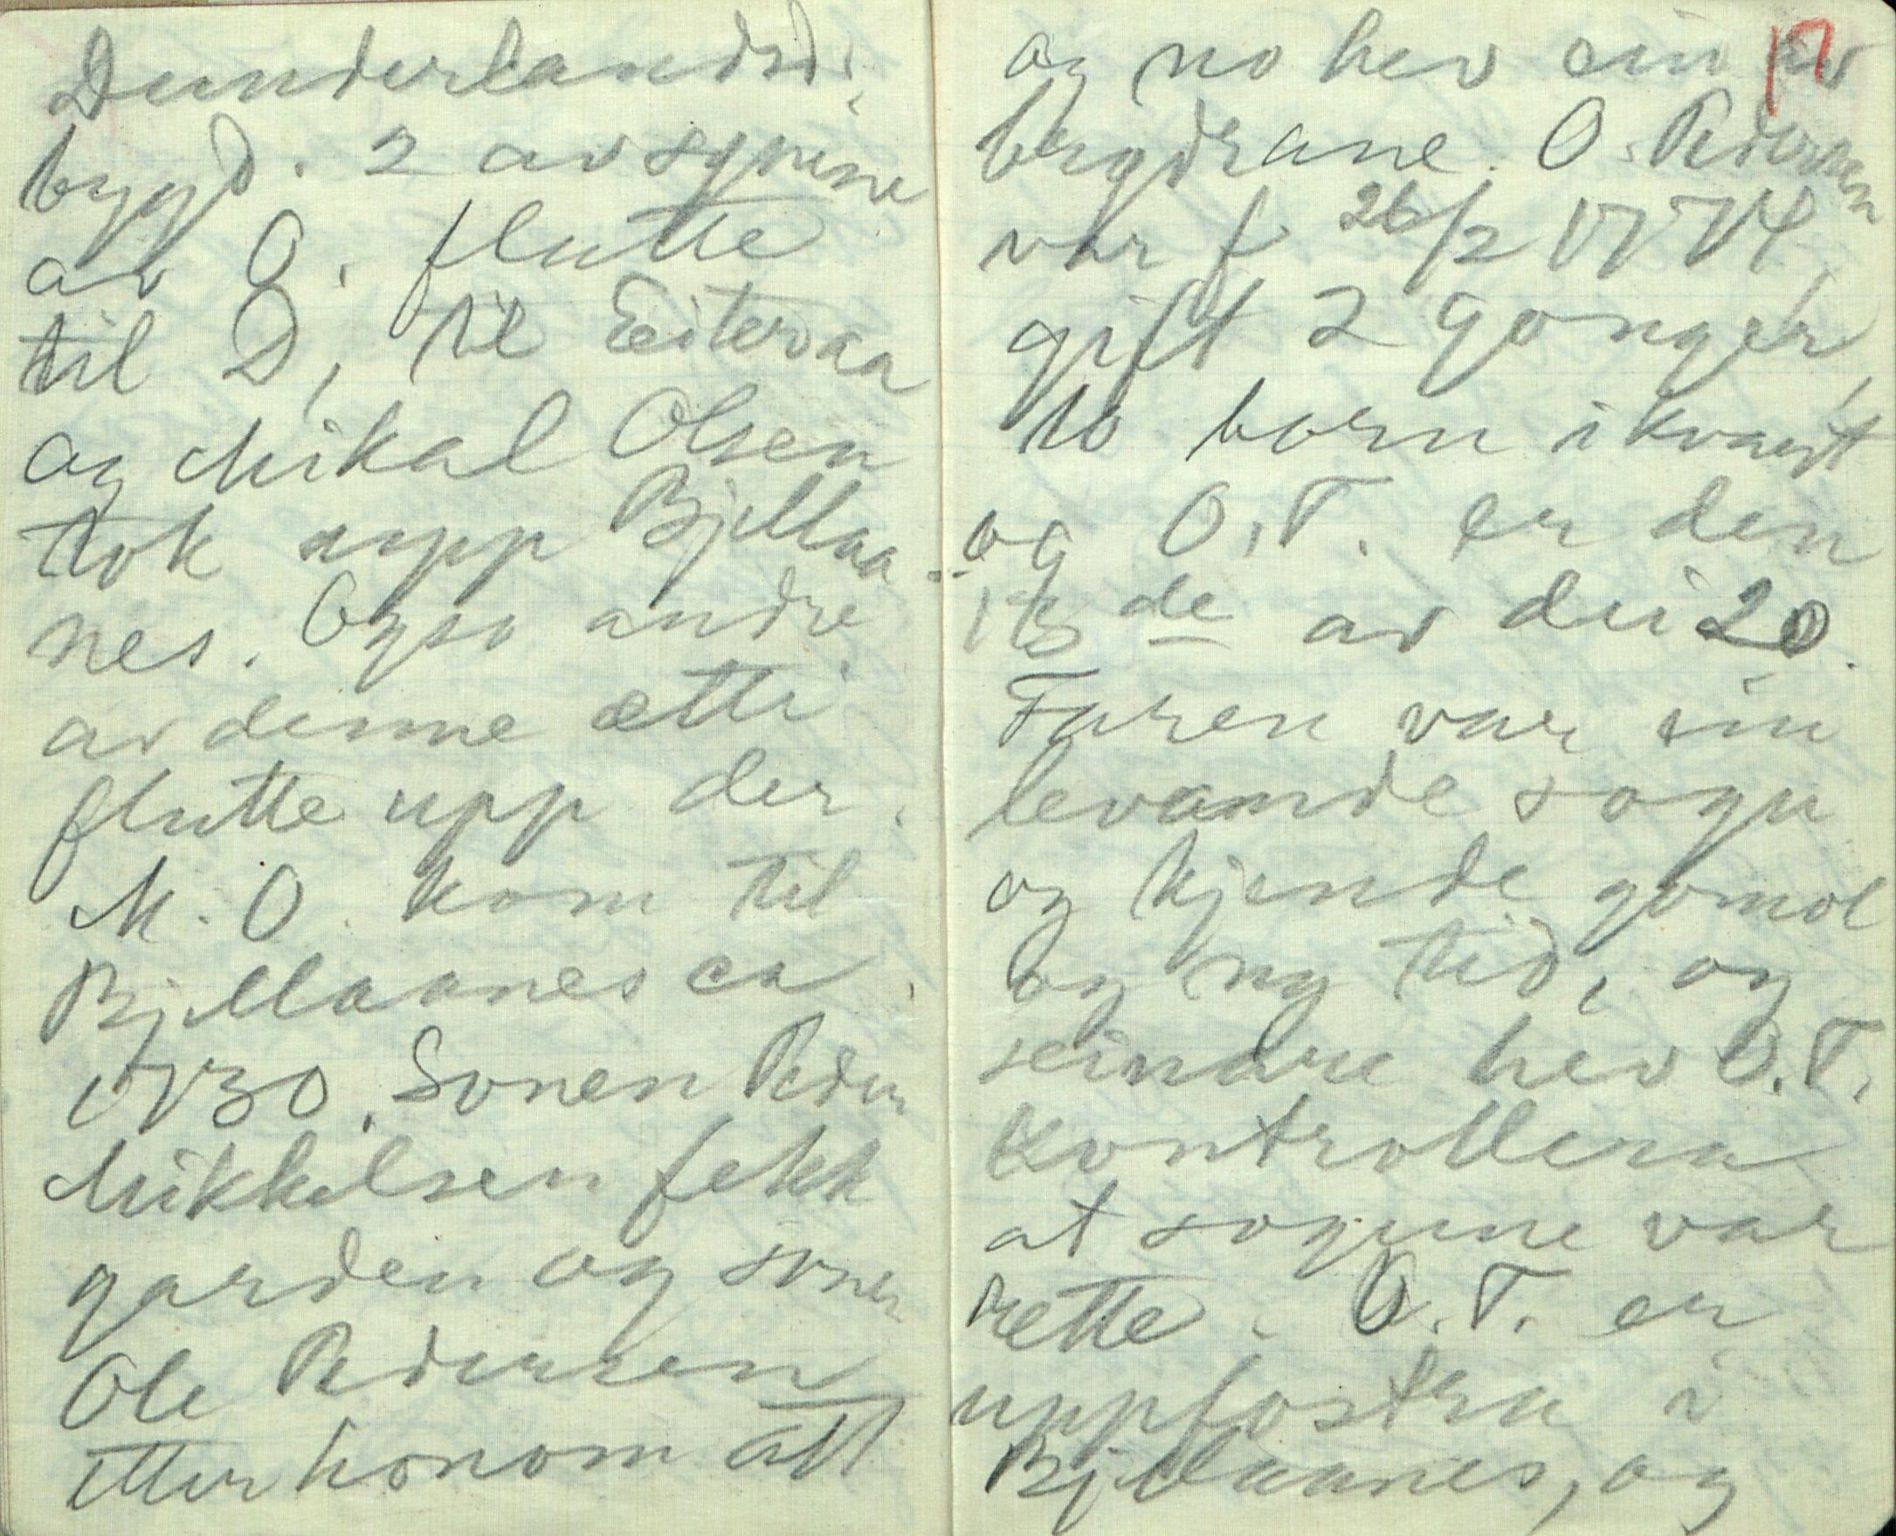 Dunderlandsd.
bygd. 2 av sønine
av O. flutte
til D, til Eiteraa
og Mikal Olsen
tok upp Bjellaa-
nes. Ogso andre
av denne ætti
flutte upp der.
M. O. kom til
Bjellaanes ca
1730. Sonen Peder
Mikkelsen fekk
garden og sonen
Ole Pedersen
etter honom att
17
og no hev ein av
brødrane. O. Pedersen
var f 26/2 1774,
gift 2 gonger,
10 born i kvart
og O. T. er den
13de av dei 20.
Faren var ein
levande sogu
og kjende gomol
og ny tid, og
seinare hev O. T.
kontrollera
at sogune var
rette. O. T. er
uppfostra i
Bjellaanes, og